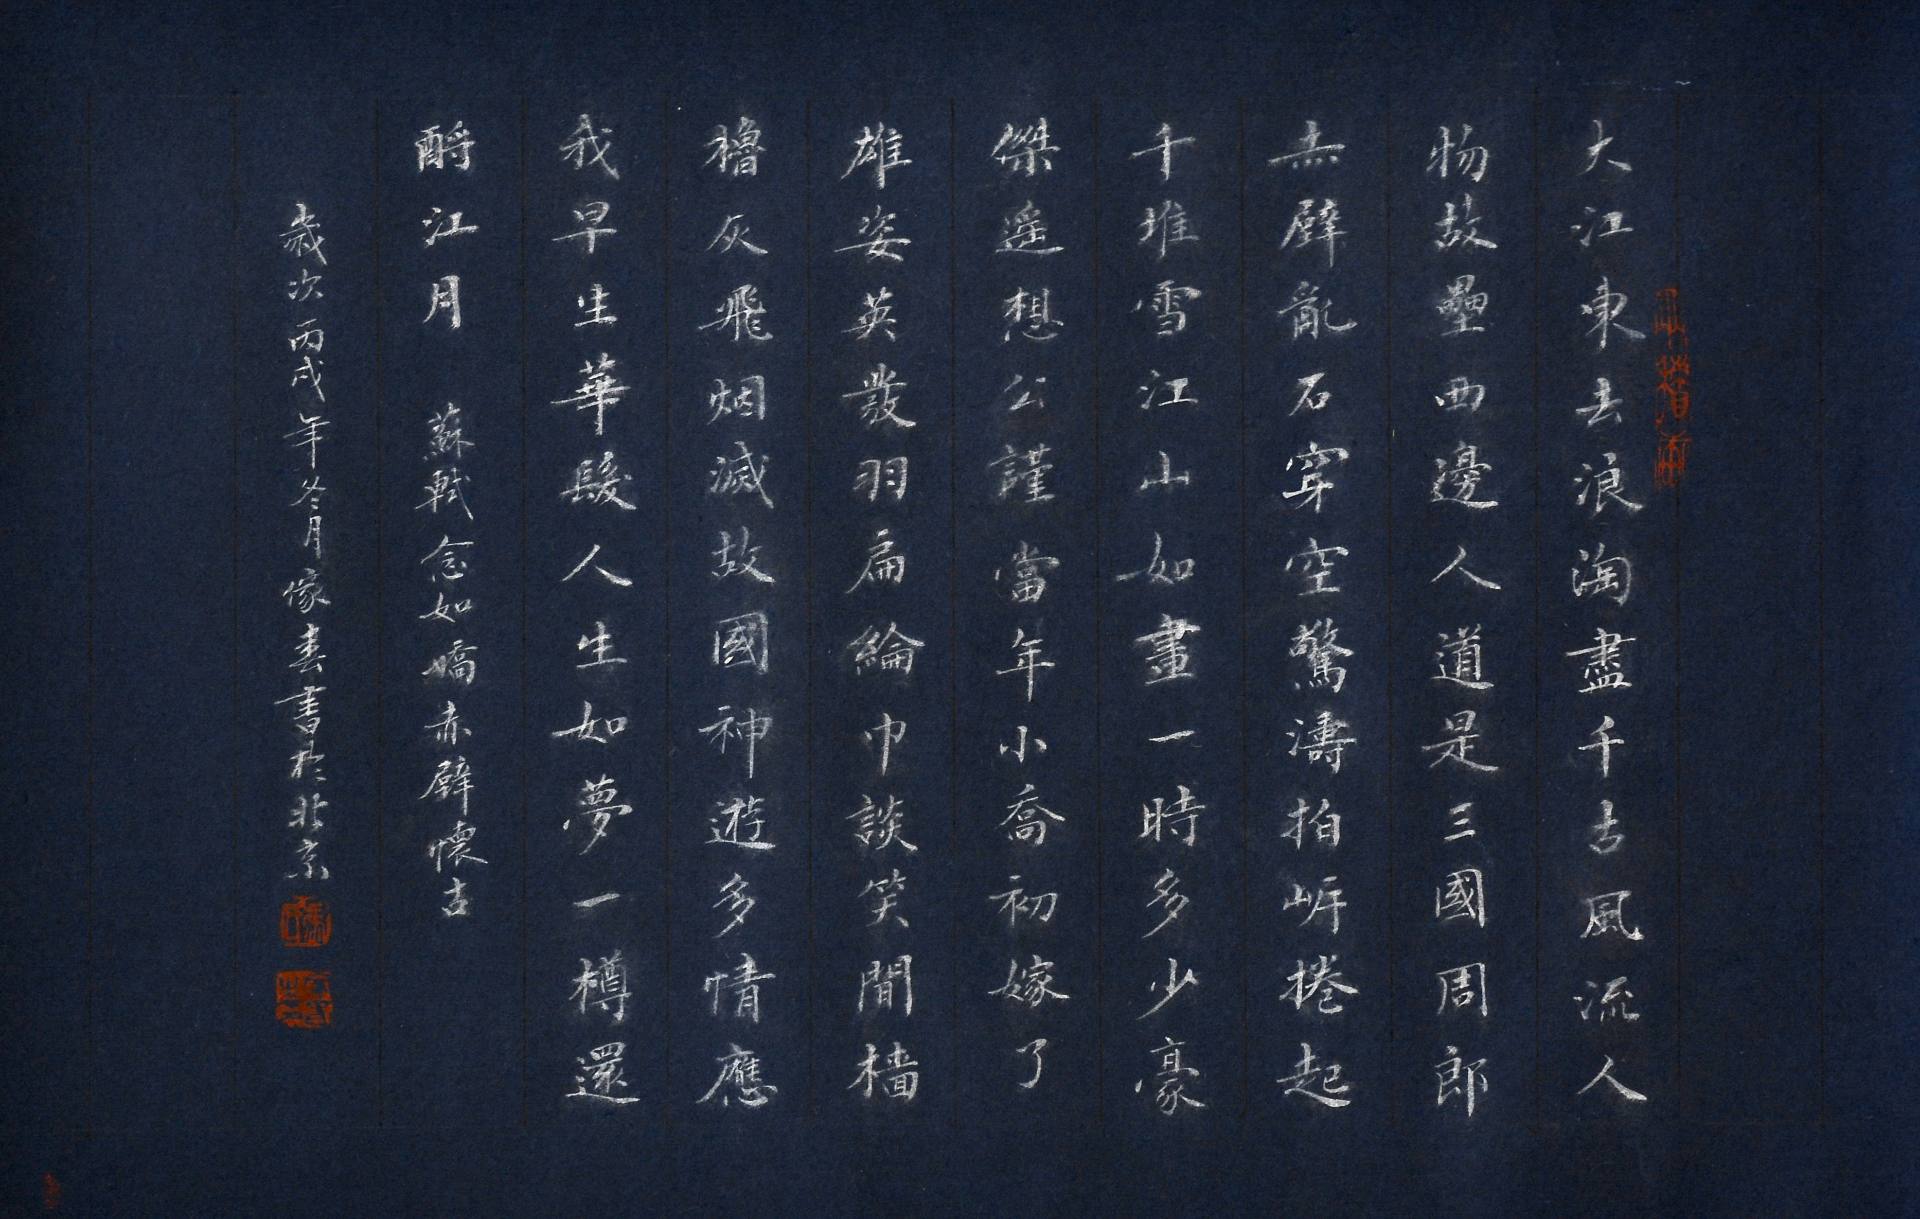 大江東去浪淘盡千古風流人
物故壘西邊人道是三國周郎
赤壁亂石穿空驚濤拍岸捲起
千堆雪江山如畫一時多少豪
傑遥想公謹當年小喬初嫁了
雄姿英發羽扇綸巾談笑間檣
櫓灰飛烟滅故國神遊多情應
我早生華髮人生如夢一樽還
酹江月 蘇軾念如嬌赤壁懷古
歲次丙戌年冬月傢春書於北京